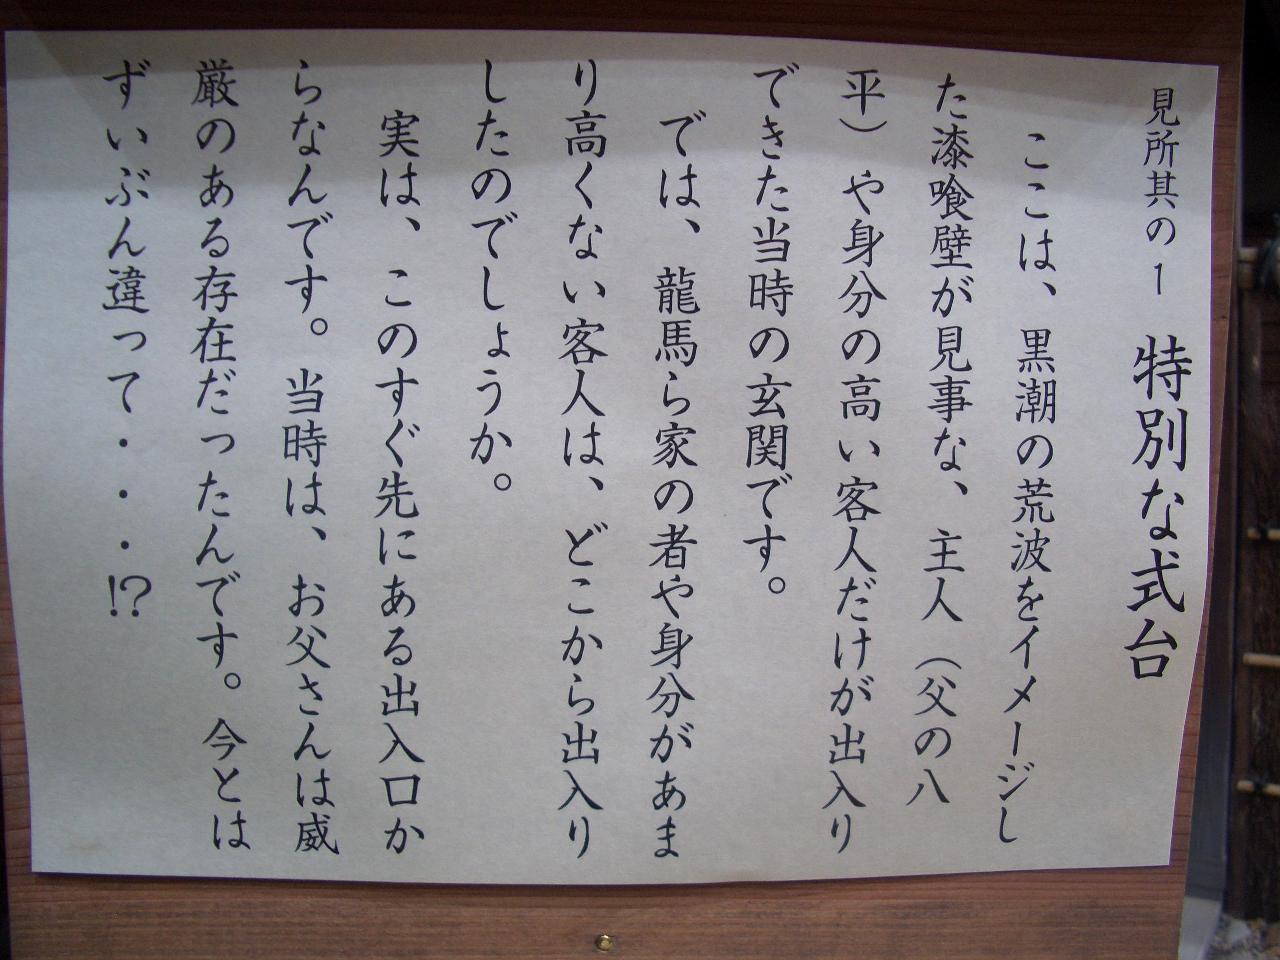 見所其の1 特別な式台
ここは、黒潮の荒波をイメージし
た漆喰壁が見事な、主人（父の八
平）や身分の高い客人だけが出入り
できた当時の玄関です。
では、龍馬ら家の者や身分があま
り高くない客人は、どこから出入り
したのでしょうか。
実は、このすぐ先にある出入口か
らなんです。当時は、お父さんは威
厳のある存在だったんです。今とは
ずいぶん違って・・・!?